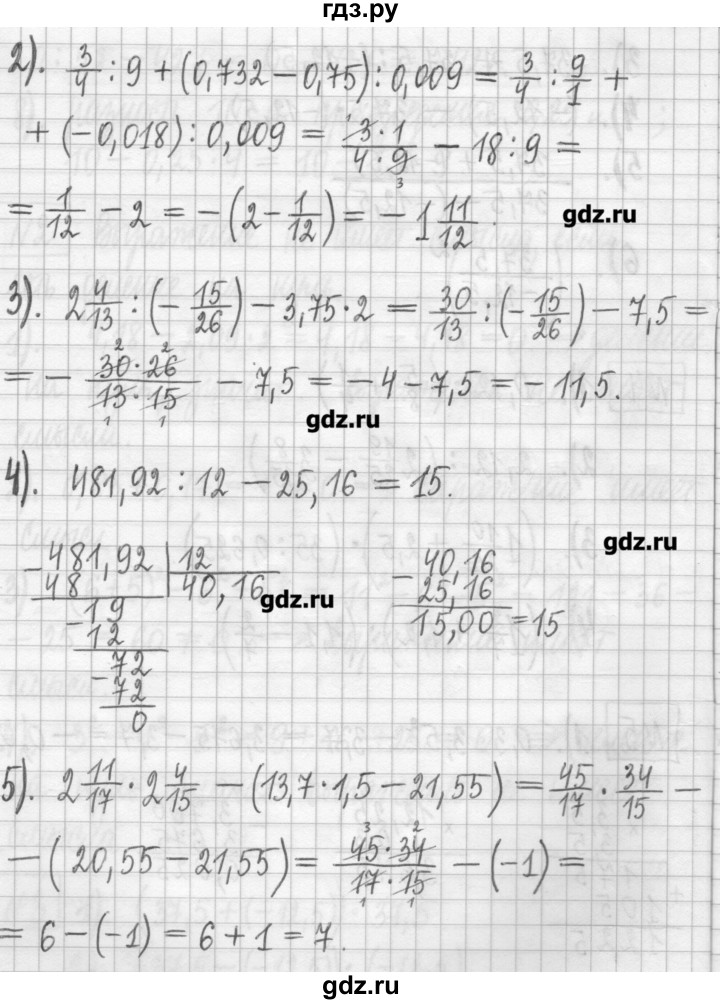 гдз.ру
2). 3/4 : 9 + (0,732 − 0,75) : 0,009 = 3/4 : 9/1 +
+ (−0,018) : 0,009 = 3·1/4·9 − 18 : 9 =
1
3
= 1/12 − 2 = −(2 − 1/12) = −1 11/12.
gdz.ru
3). 2 4/13 : (−15/26) − 3,75·2 = 30/13 : (−15/26) − 7,5 =
2 2
= − 30·26/13·15 − 7,5 = −4 − 7,5 = −11,5.
1 1
gdz.ru
4). 481,92 : 12 − 25,16 = 15.
gdz.ru
−481,92 | 12
48 40,16
gdz.ru
−19
12
−72
72
0
−40,16
25,16
15,00 = 15
5). 2 11/17 · 2 4/15 − (13,7·1,5 − 21,55) = 45/17 · 34/15 −
3 2
− (20,55 − 21,55) = 45·34/17·15 − (−1) =
1 1
= 6 − (−1) = 6 + 1 = 7.
gdz.ru